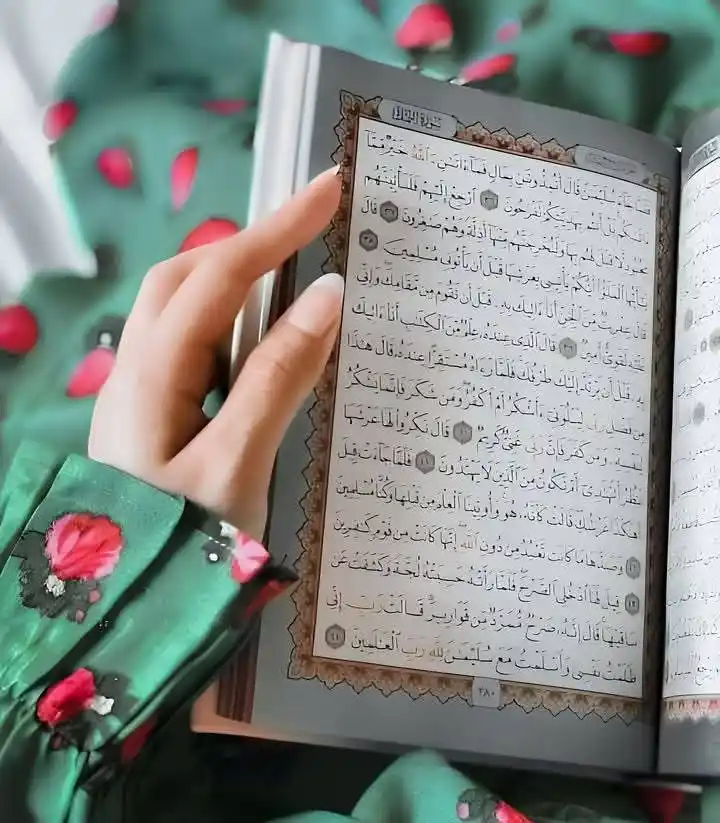 سُورَةُ النَّمْلِ
فَلَمَّا جَآءَ سُلَيْمَٰنَ قَالَ أَتُمِدُّونَنِ بِمَالٍ فَمَآ ءَاتَىٰنِۦَ ٱللَّهُ خَيْرٌ مِّمَّآ
ءَاتَىٰكُم بَلْ أَنتُم بِهَدِيَّتِكُمْ تَفْرَحُونَ ٣٦ ٱرْجِعْ إِلَيْهِمْ فَلَنَأْتِيَنَّهُم
بِجُنُودٍ لَّا قِبَلَ لَهُم بِهَا وَلَنُخْرِجَنَّهُم مِّنْهَآ أَذِلَّةً وَهُمْ صَٰغِرُونَ ٣٧ قَالَ
يَٰٓأَيُّهَا ٱلْمَلَؤُا۟ أَيُّكُمْ يَأْتِينِى بِعَرْشِهَا قَبْلَ أَن يَأْتُونِى مُسْلِمِينَ ٣٨
قَالَ عِفْرِيتٌ مِّنَ ٱلْجِنِّ أَنَا۠ ءَاتِيكَ بِهِۦ قَبْلَ أَن تَقُومَ مِن مَّقَامِكَ وَإِنِّى
عَلَيْهِ لَقَوِىٌّ أَمِينٌ ٣٩ قَالَ ٱلَّذِى عِندَهُۥ عِلْمٌ مِّنَ ٱلْكِتَٰبِ أَنَا۠ ءَاتِيكَ
بِهِۦ قَبْلَ أَن يَرْتَدَّ إِلَيْكَ طَرْفُكَ فَلَمَّا رَءَاهُ مُسْتَقِرًّا عِندَهُۥ قَالَ هَٰذَا
مِن فَضْلِ رَبِّى لِيَبْلُوَنِىٓ ءَأَشْكُرُ أَمْ أَكْفُرُ وَمَن شَكَرَ فَإِنَّمَا يَشْكُرُ
لِنَفْسِهِۦ وَمَن كَفَرَ فَإِنَّ رَبِّى غَنِىٌّ كَرِيمٌ ٤٠ قَالَ نَكِّرُوا۟ لَهَا عَرْشَهَا
نَنظُرْ أَتَهْتَدِىٓ أَمْ تَكُونُ مِنَ ٱلَّذِينَ لَا يَهْتَدُونَ ٤١ فَلَمَّا جَآءَتْ قِيلَ
أَهَٰكَذَا عَرْشُكِ قَالَتْ كَأَنَّهُۥ هُوَ وَأُوتِينَا ٱلْعِلْمَ مِن قَبْلِهَا وَكُنَّا مُسْلِمِينَ
٤٢ وَصَدَّهَا مَا كَانَت تَّعْبُدُ مِن دُونِ ٱللَّهِ إِنَّهَا كَانَتْ مِن قَوْمٍ كَٰفِرِينَ
٤٣ قِيلَ لَهَا ٱدْخُلِى ٱلصَّرْحَ فَلَمَّا رَأَتْهُ حَسِبَتْهُ لُجَّةً وَكَشَفَتْ عَن
سَاقَيْهَا قَالَ إِنَّهُۥ صَرْحٌ مُّمَرَّدٌ مِّن قَوَارِيرَ قَالَتْ رَبِّ إِنِّى
ظَلَمْتُ نَفْسِى وَأَسْلَمْتُ مَعَ سُلَيْمَٰنَ لِلَّهِ رَبِّ ٱلْعَٰلَمِينَ ٤٤
٣٨٠